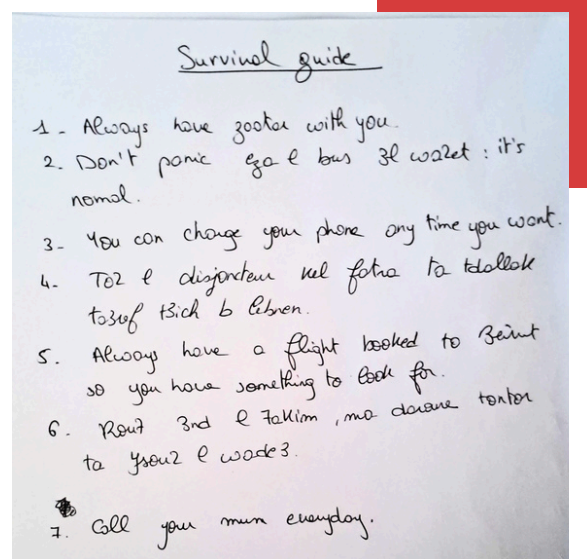 Survival guide
1 - Always have zaatar with you.
2. Don't panic eza l bus 3l wa2et : it's
normal.
3 - You can charge your phone any time you want.
4 - To2 l disjoncteur kel fatra ta tdallak
ta3ref t3ich b lebnen.
5. Always have a flight booked to Beirut
so you have something to look for.
6. Rou7 3nd l 7akim, ma darure tontor
ta ysou2 l wade3.
7. Call your mum everyday.